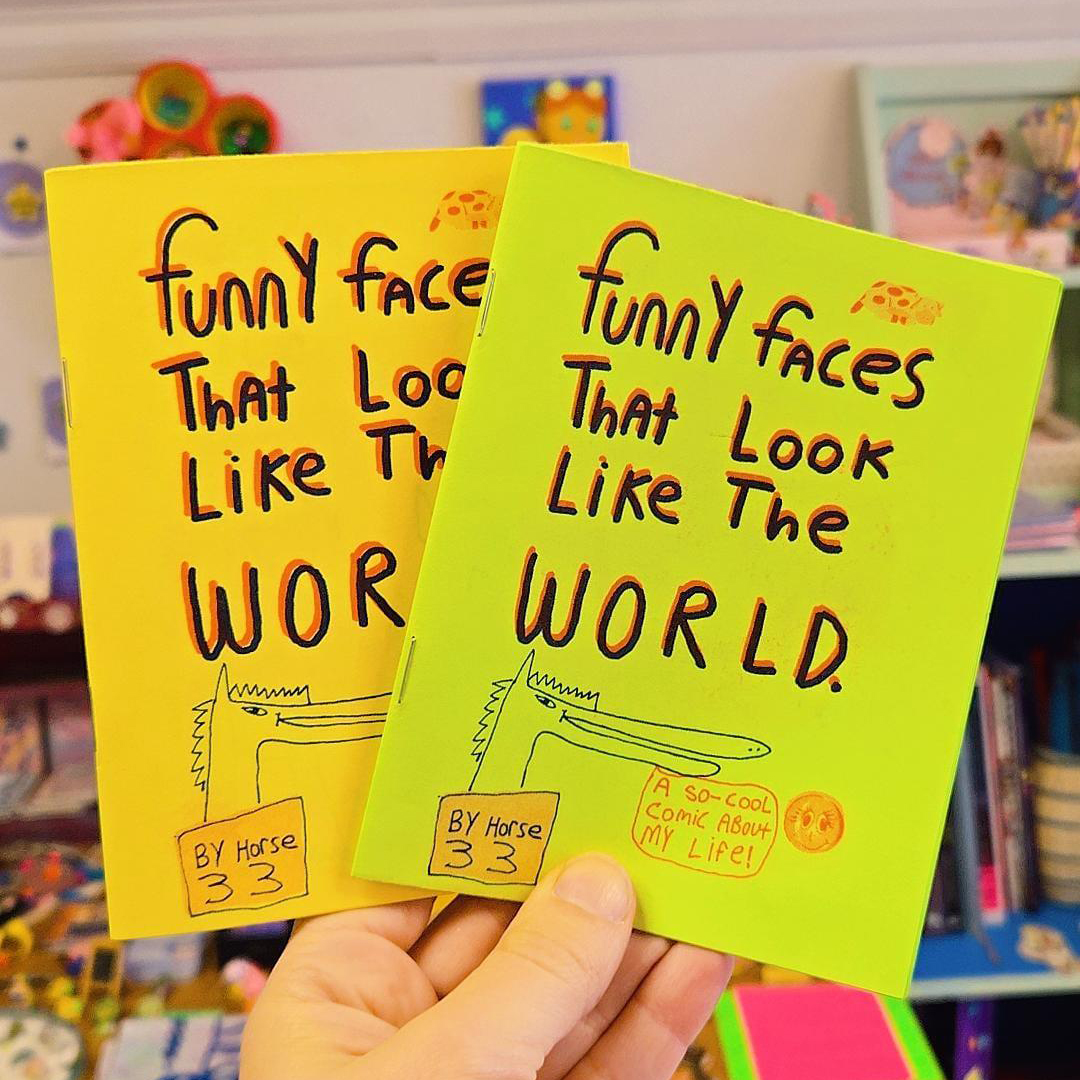 funny face
That Loo
Like Th
WOR
BY Horse
33
funny faces
That Look
Like The
WORLD.
BY Horse
33
A so-cool
Comic About
MY Life!